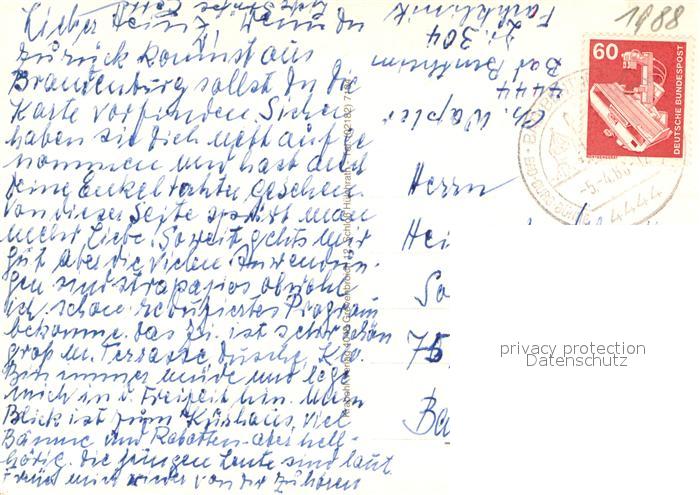 Lieber Heinz, Wenn du
zurück kommst aus
Brandenburg sollst du die
Karte vorfinden. Sicher
haben sie dich nett aufge
nommen und hast auch
deine Enkeltochter gesehen.
Von dieser Seite spürt man
mehr Liebe. Soweit gehts mir
gut aber die vielen Anwendun-
gen sind strapaziös obwohl
ich schon reduziertes Program
bekomme. das Zi. ist sehr schön
groß m. Terrasse, dusche, Klo.
Bin immer müde und lege
mich in d. Freizeit hin. Mein
Blick ist zum Kurhaus, viel
Bäume und Rabatten - aber hell-
hörig. die jungen Leute sind laut
Freue mich wieder von dir zu hören
Ch. Wapler
4444
Bad Bentheim
Zi. 304
Fachklinik
1988
60
DEUTSCHE BUNDESPOST
4444
Herrn
Hei
So
75
Ba
privacy protection
Datenschutz